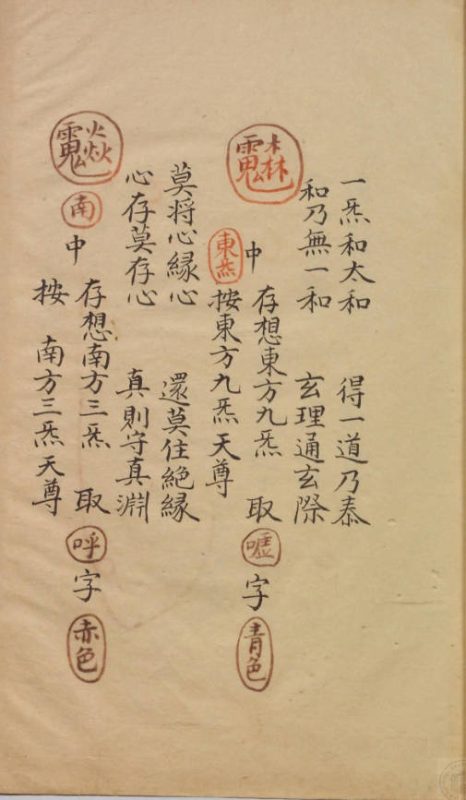 一炁和太和　得一道乃泰
和乃無一和　玄理通玄際
中　存想東方九炁　取噓字青色
東炁　按東方九炁天尊
莫将心緣心　還莫住絕緣
心存莫存心　真則守真淵
南中　存想南方三炁　取呼字赤色
按　南方三炁天尊